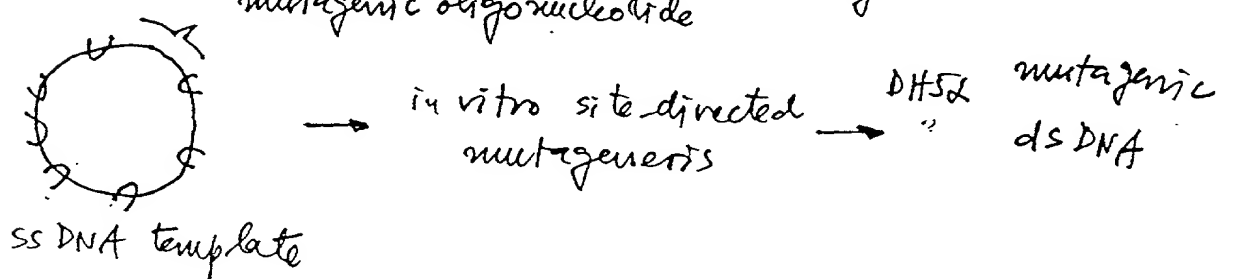 mutagenic oligonucleotide
U
in vitro site-directed
mutagenesis
DH5α mutagenic
ds DNA
ss DNA template